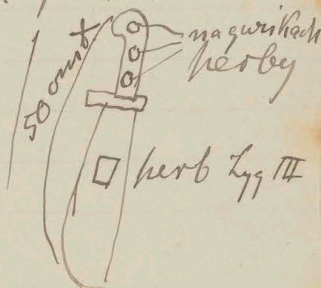 50 cmt
na guzikach
herby
herb Zyg III